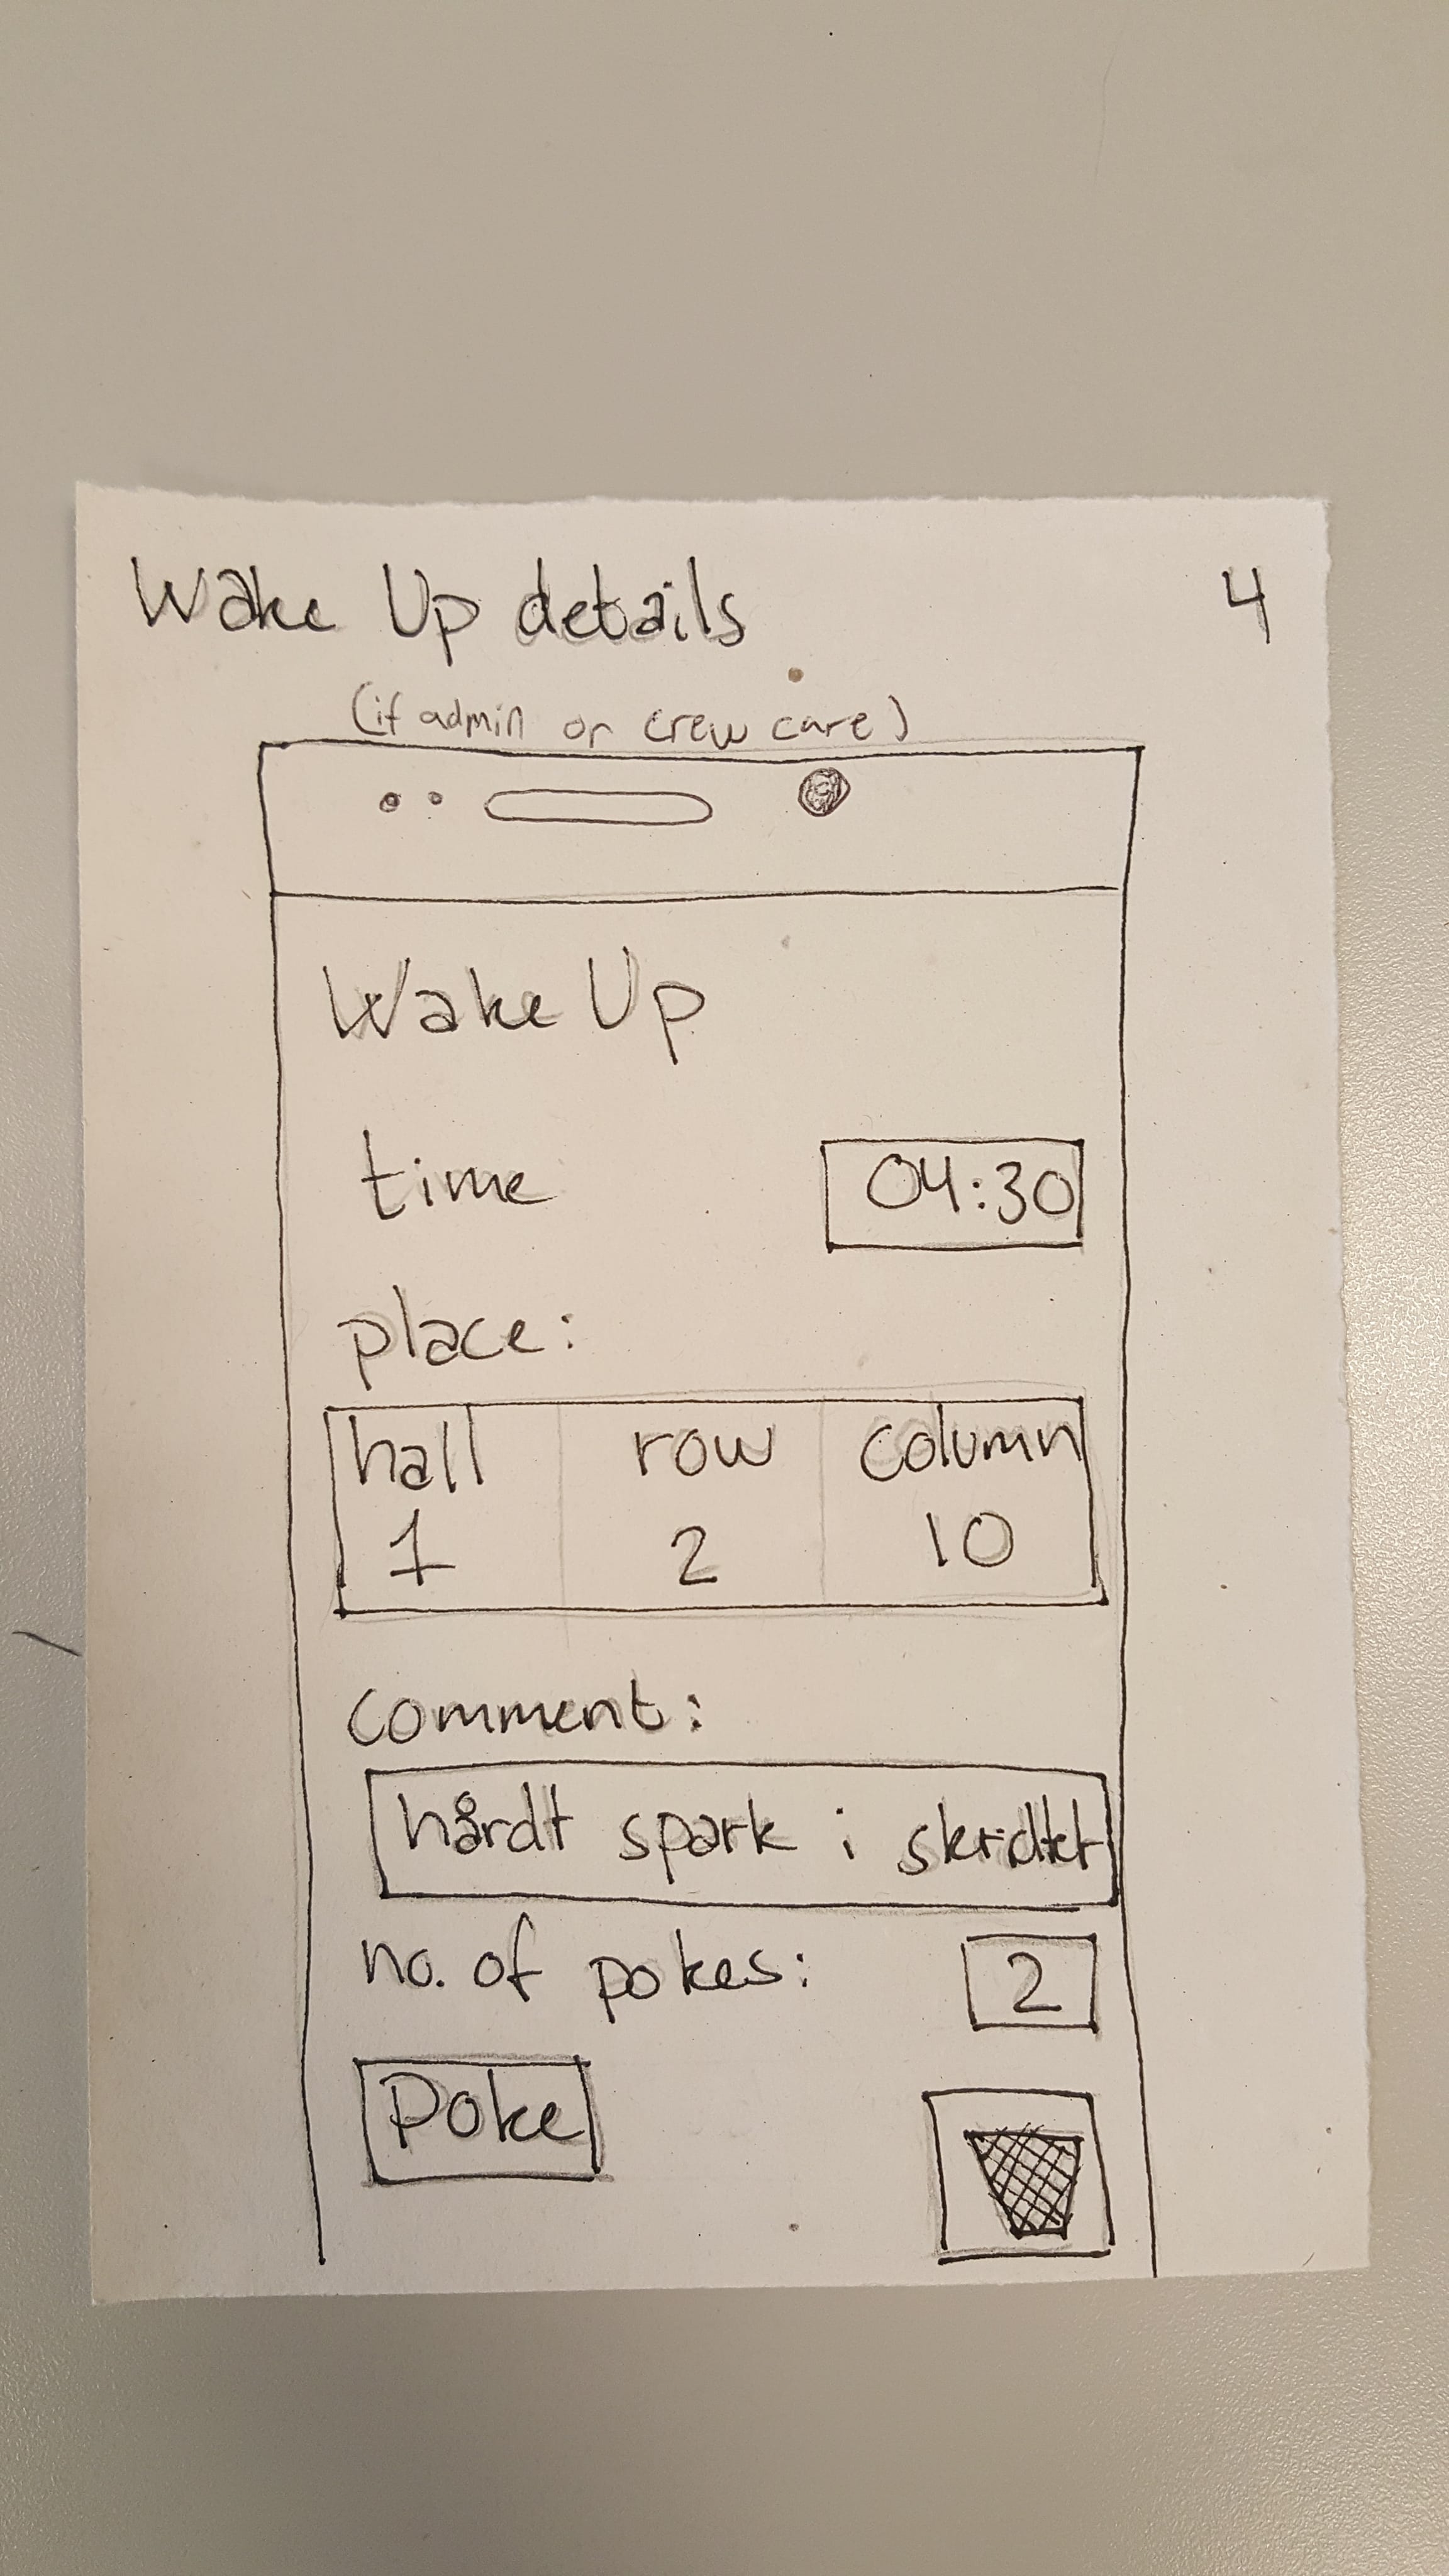 Wake Up details 4
(if admin or crew care)
Wake Up
time 04:30
place:
hall row column
1 2 10
comment:
hårdt spark i skridtet
no. of pokes: 2
Poke